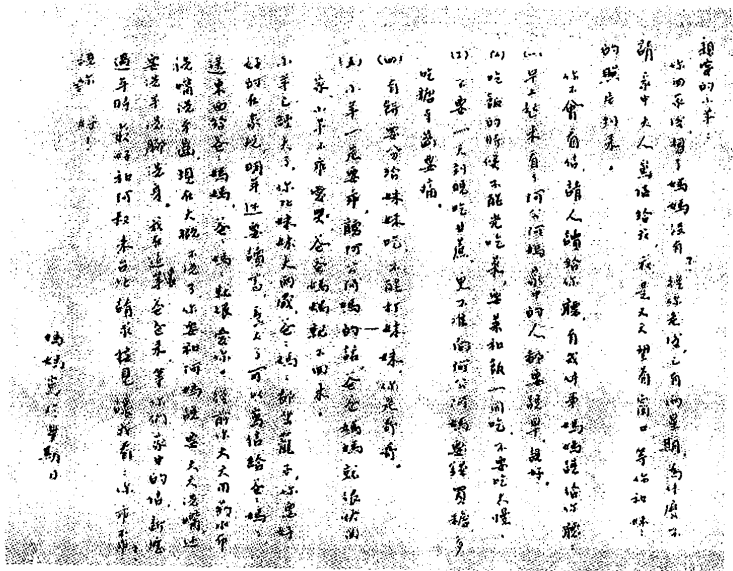 親愛的小羊：
你回家後，想了媽媽沒有？離你走後已有兩星期，為什麼不
請家中大人寫信給我，我是天天望着窗口，等你和妹妹
的照片到來。
你不會看信，請人讀給你聽，有幾件事媽媽說給你聽：
(一)早上起來看了阿公阿媽家中的人都要說早，說好。
(二)吃飯的時候不能光吃菜，要菜和飯一同吃，不要吃太慢。
(三)不要一天到晚吃甘蔗，更不准向阿公阿媽要錢買糖，多
吃糖牙齒要痛。
(四)有餅要分給妹妹吃，不能打妹妹，你是哥哥。
(五)小羊一定要乖，聽阿公阿媽的話，爸爸媽媽就很快回
家，小羊不乖，愛哭，爸爸媽媽就不回來。
小羊已經大了，你比妹妹大兩歲，爸爸媽媽都坐籠子，你要好
好的在家玩，明年還要讀書，長大了可以寫信給爸爸媽媽，
送東西給爸爸媽媽，爸爸媽媽就很愛你。從前你天天用藥水布
洗嘴洗牙齒，現在大概不洗了，你要和阿媽說要天天洗嘴，還
要洗手洗腳洗身。我在這等爸爸來，等你們家中的信，新年
過年時最好和阿叔來台北請求接見，讓我看看你乖不乖。
祝你 好！
媽媽寫於星期日